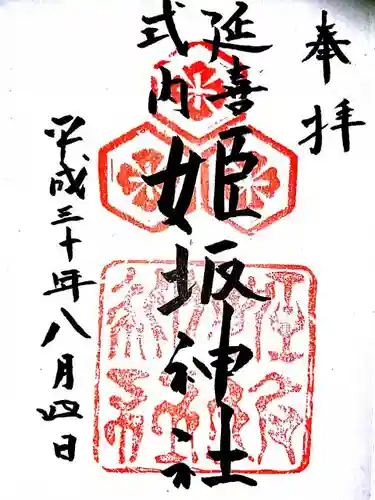 奉拝
延喜
式内
姫坂神社
平成三十年八月四日